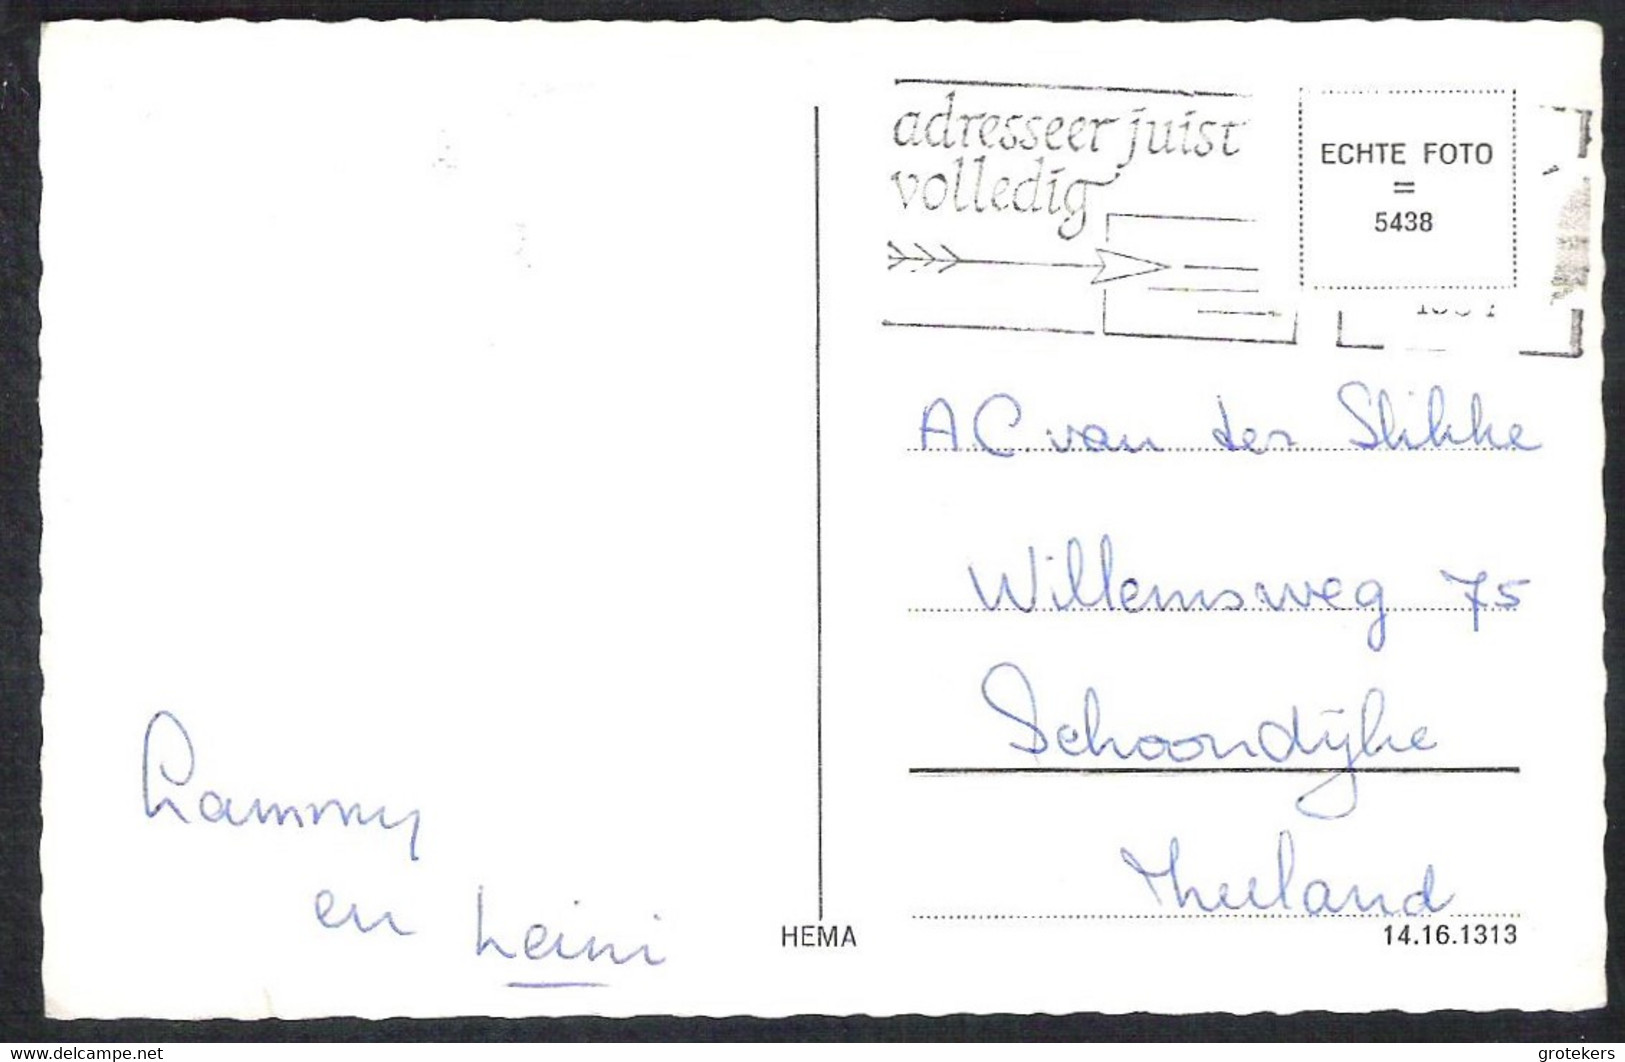 adresseer juist
volledig
ECHTE FOTO
=
5438
A.C. van der Slikke
Willemsweg 75
Schoondijke
Zeeland
Lammy
en Leini
HEMA
14.16.1313
www.delcampe.net
grotekers